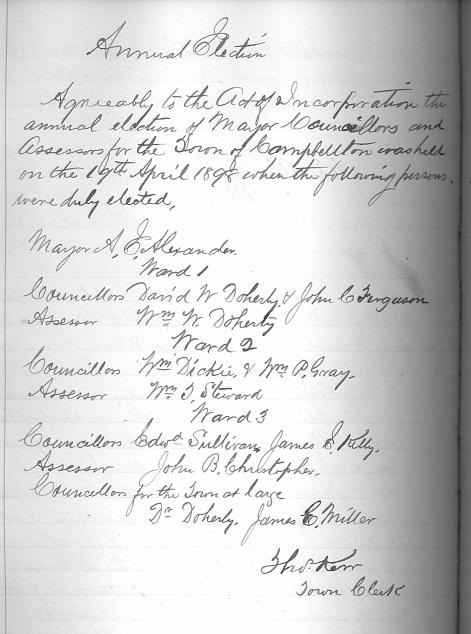 Annual Election
Agreeably to the Act of Incorporation the
annual election of Mayor Councillors and
Assessors for the Town of Campbellton was held
on the 19th April 1898 when the following persons
were duly elected,
Mayor A. E. Alexander.
Ward 1
Councillors David W Doherty & John C Ferguson
Assessor Wm W. Doherty
Ward 2
Councillors Wm Dickie & Wm P. Gray.
Assessor Wm T. Steward
Ward 3
Councillors Edwd Sullivan, James E. Kelly.
Assessor John B. Christopher.
Councillors for the Town at large
Dr Doherty. James E. Miller
Thos. Kerr
Town Clerk